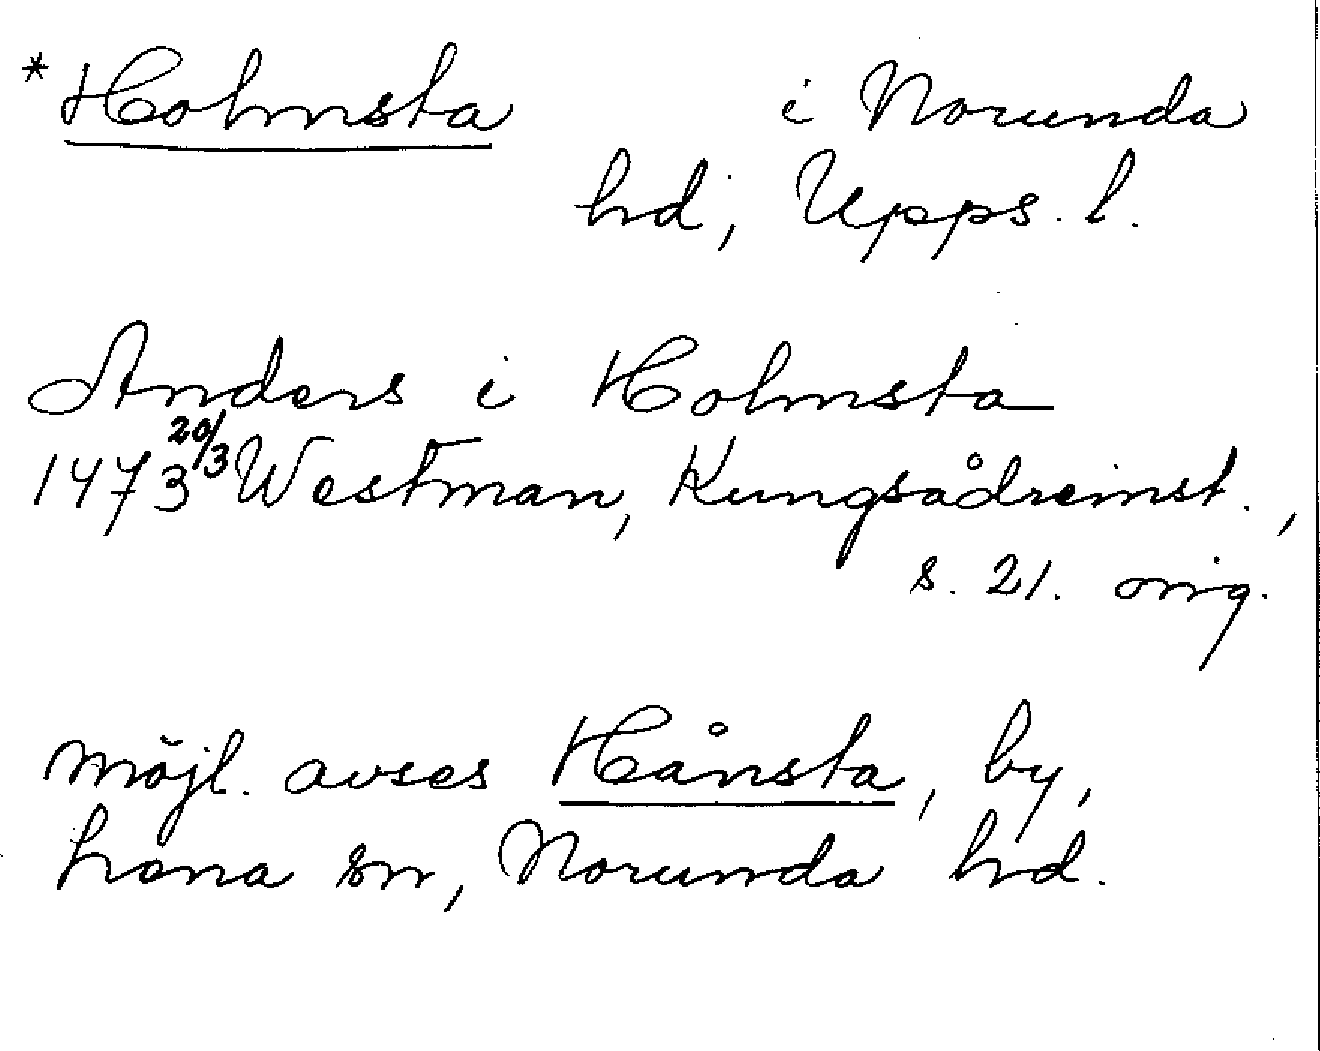 *Holmsta i Norunda
hd, Upps. l.
Anders i Holmsta
1473 20/3 Westman, Kungsådreinst.,
s. 21. orig.
möjl. avses Hånsta, by,
Lena sn, Norunda hd.